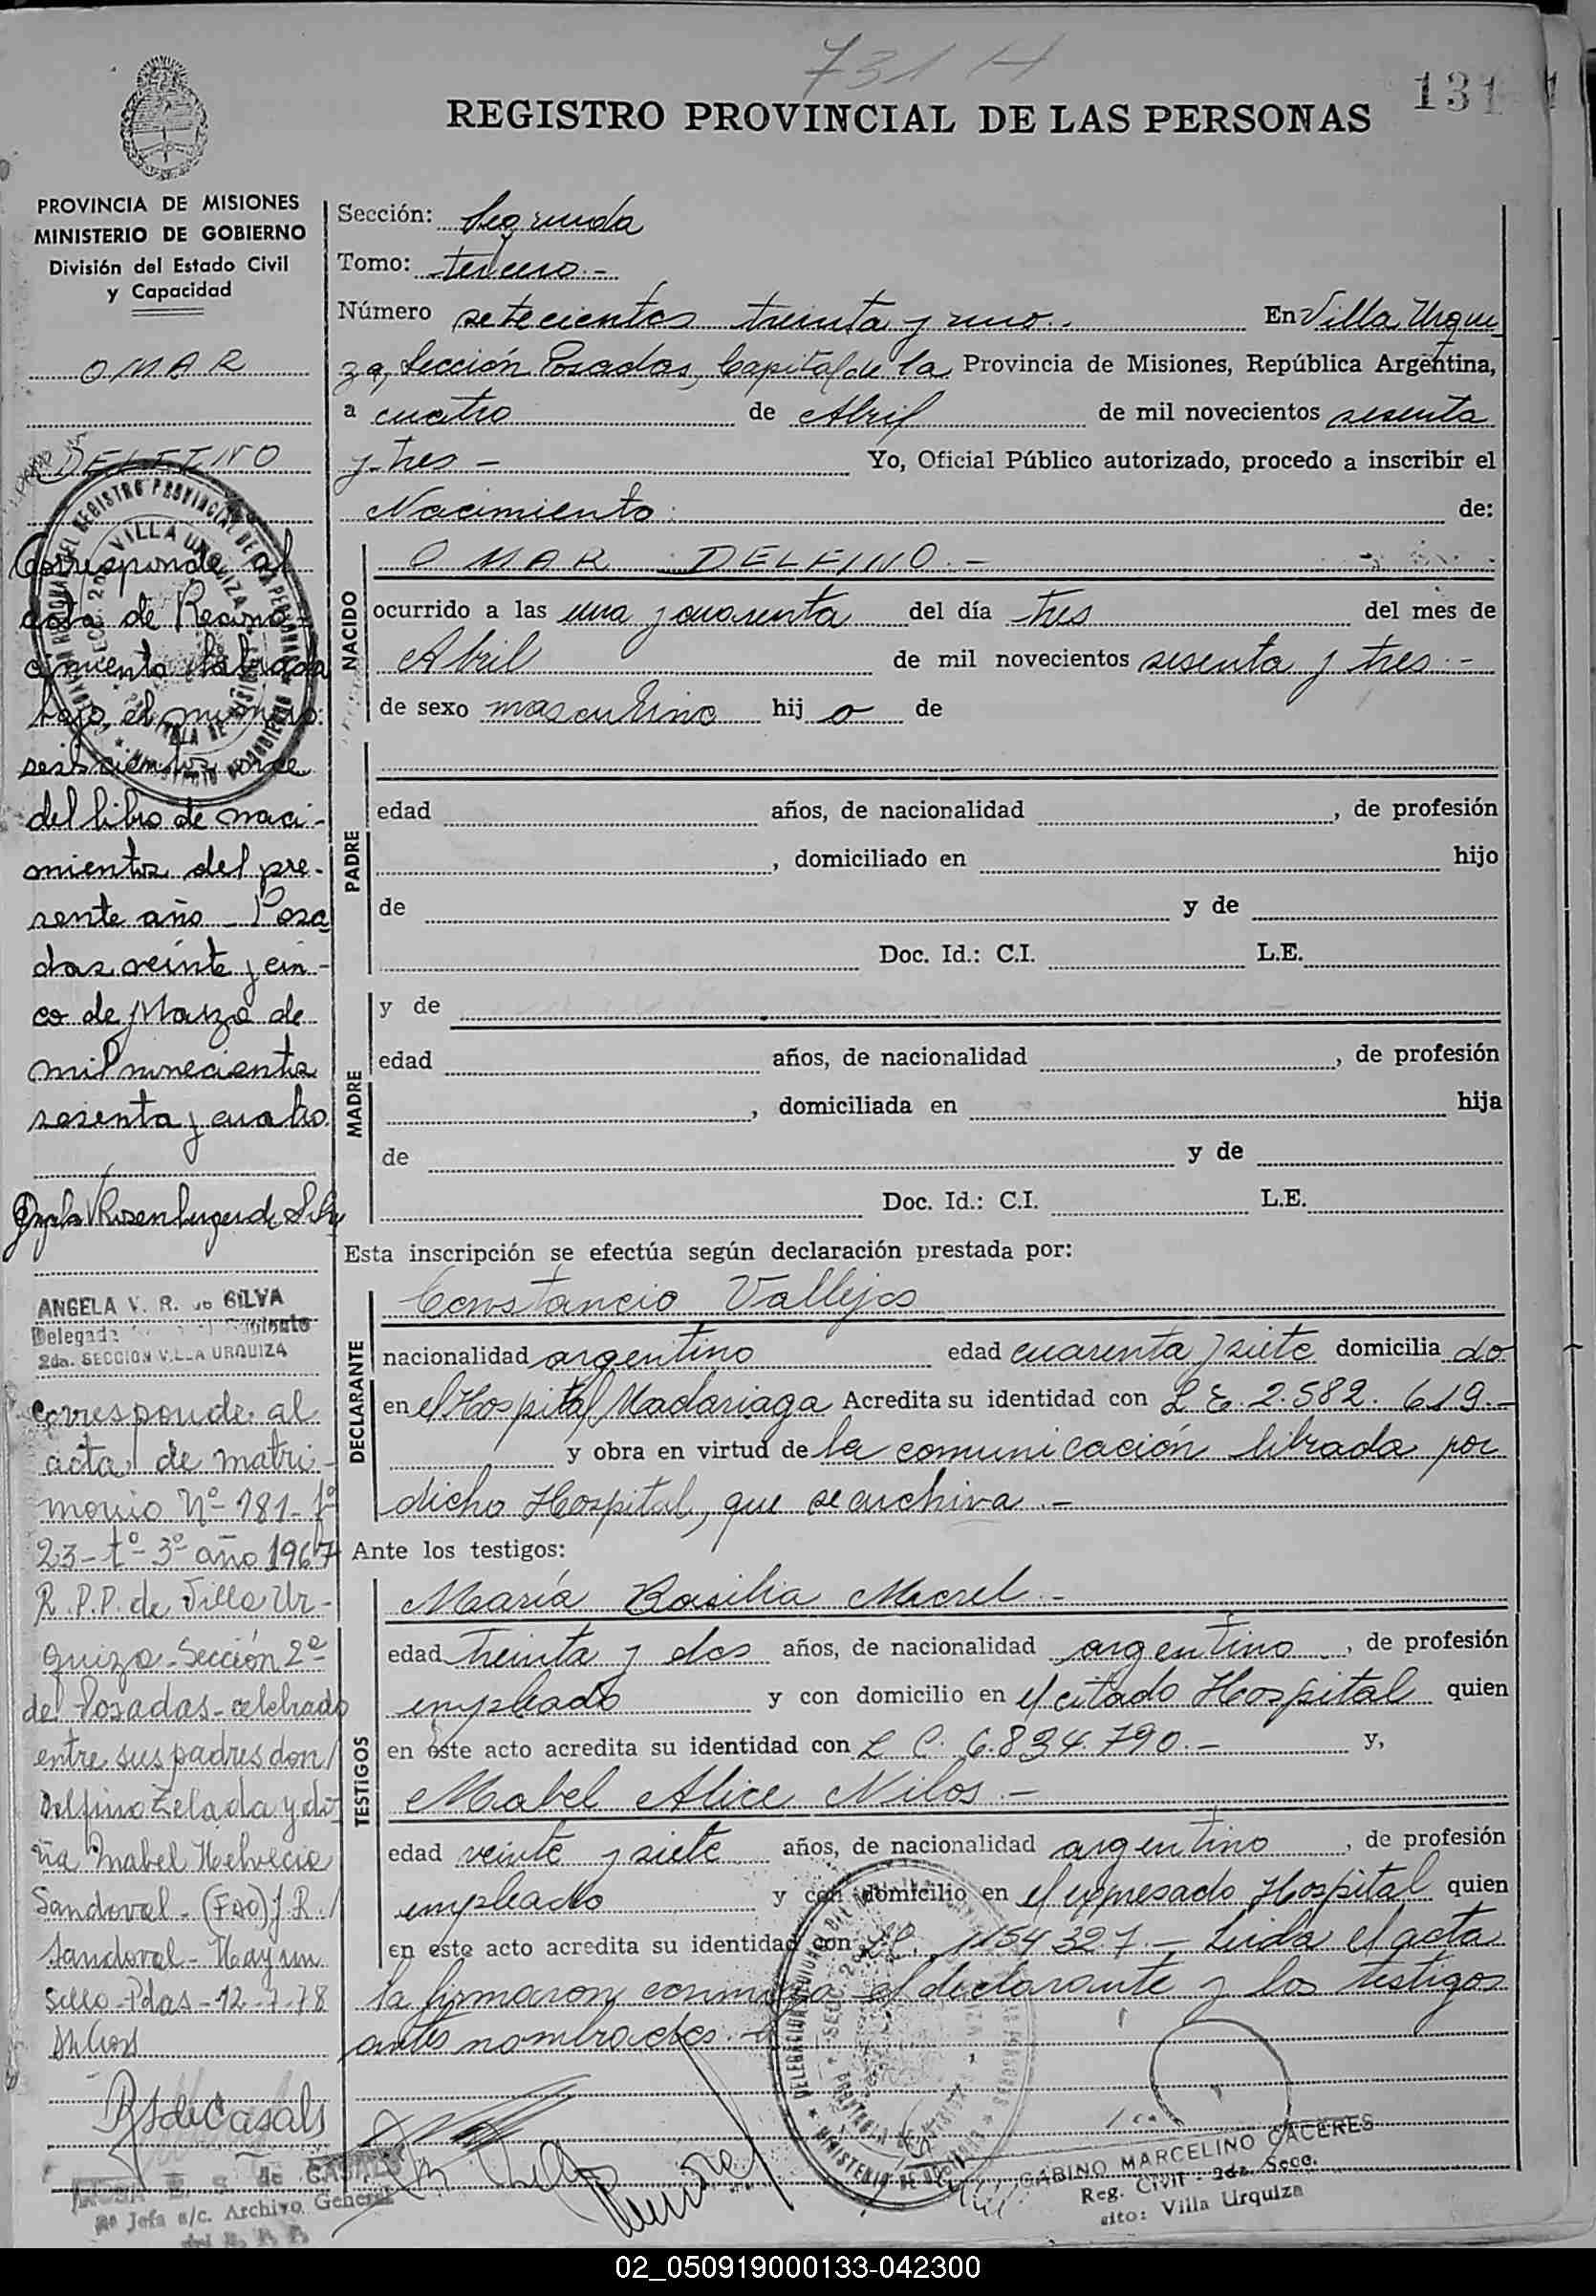 731 H
131
REGISTRO PROVINCIAL DE LAS PERSONAS
PROVINCIA DE MISIONES
MINISTERIO DE GOBIERNO
División del Estado Civil
y Capacidad
OMAR
DELFINO
Corresponde al
acta de Recono-
cimiento labrada
bajo el número
seiscientos once
del libro de naci-
mientos del pre-
sente año Posa
das veinte y cin-
co de Marzo de
mil novecientos
sesenta y cuatro.
ANGELA V. R. de SILVA
2da. SECCION VILLA URQUIZA
Corresponde al
acta de matri-
monio Nº 181-fº
23-tº-3º año 1967
R.P.P. de Villa Ur-
quiza-Sección 2ª
de Posadas-celebrado
entre sus padres don
Delfino Zelada y do-
ña Mabel Helvecia
Sandoval-(Fdo) J.R.
Sandoval-Hay un
sello-Pdas-12-7-78
RS de Casals
ROSA E. S. de CASALS
2º Jefa a/c. Archivo General
del R. P. P.
Sección: Segunda
Tomo: tercero.-
Número setecientos treinta y uno.- En Villa Urqui
za, Sección Posadas, Capital de la Provincia de Misiones, República Argentina,
a cuatro de Abril de mil novecientos sesenta
y tres - Yo, Oficial Público autorizado, procedo a inscribir el
Nacimiento de:
NACIDO
OMAR DELFINO.-
ocurrido a las una y cuarenta del día tres del mes de
Abril de mil novecientos sesenta y tres.-
de sexo masculino hijo de
PADRE
edad años, de nacionalidad , de profesión
, domiciliado en hijo
de y de
Doc. Id.: C.I. L.E.
MADRE
y de
edad años, de nacionalidad , de profesión
, domiciliada en hija
de y de
Doc. Id.: C.I. L.E.
Esta inscripción se efectúa según declaración prestada por:
DECLARANTE
Constancio Vallejos
nacionalidad argentino edad cuarenta y siete domiciliado
en el Hospital Madariaga Acredita su identidad con L.E. 2.582.619.-
y obra en virtud de la comunicación librada por
dicho Hospital, que se archiva.-
Ante los testigos:
TESTIGOS
María Basilia Morel.-
edad treinta y dos años, de nacionalidad argentino , de profesión
empleado y con domicilio en el citado Hospital quien
en este acto acredita su identidad con L C. 6.834.790.- y,
Mabel Alice Nilos.-
edad veinte y siete años, de nacionalidad argentino , de profesión
empleado y con domicilio en el expresado Hospital quien
en este acto acredita su identidad con 1154327.- Leida el acta
la firmaron conmigo el declarante y los testigos
antes nombrados.-
GABINO MARCELINO CACERES
Reg. Civil - 2da. Secc.
sito: Villa Urquiza
02_050919000133-042300